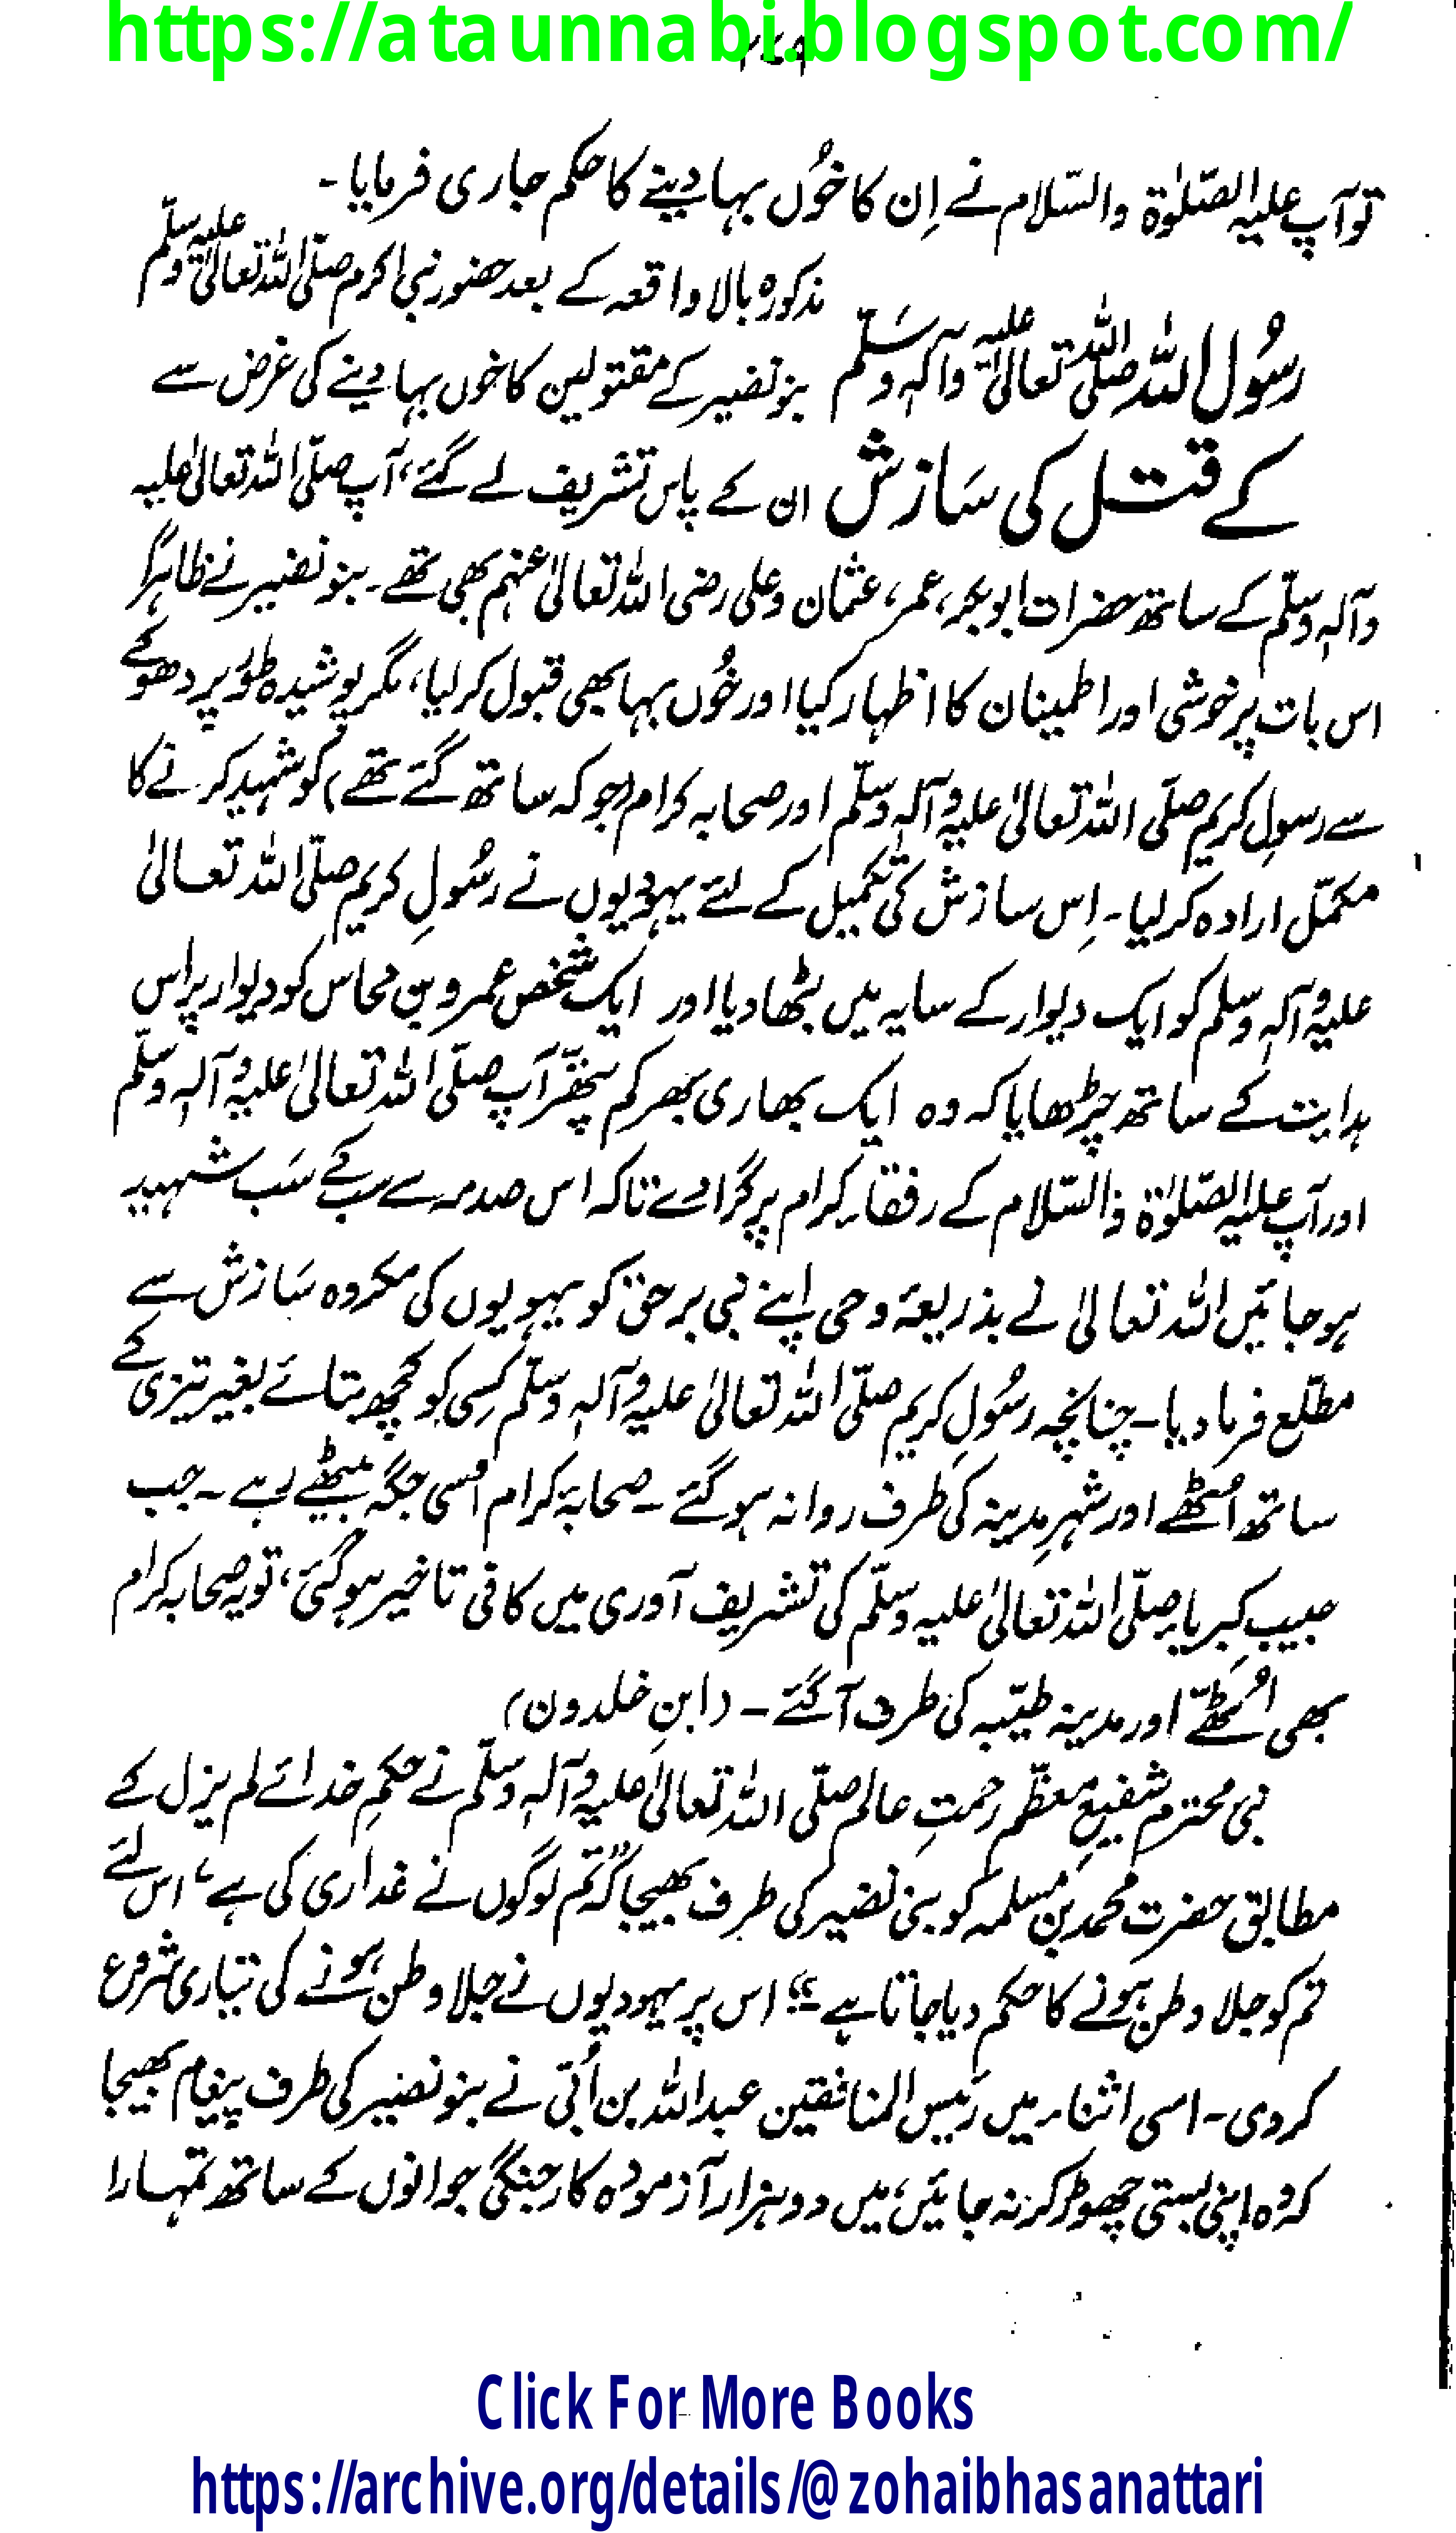 https://ataunnabi.blogspot.com/
۲۷۹
تو آپ علیہ الصّلوٰۃ والسّلام نے اِن کا خُوں بہا دینے کا حکم جاری فرمایا ۔
مذکورہ بالا واقعہ کے بعد حضور نبی اکرم صلّی اللہ تعالیٰ علیہ وسلّم
رسُول اللہ صلی اللہ تعالیٰ علیہ وآلہٖ وسَلّم
بنو نضیر کے مقتولین کا خوں بہا دینے کی غرض سے
کے قتل کی سَازش
ان کے پاس تشریف لے گئے، آپ صلّی اللہ تعالیٰ علیہ
وآلہٖ وسلّم کے ساتھ حضرات ابوبکر، عمر، عثمان وعلی رضی اللہ تعالیٰ عنہم بھی تھے۔ بنو نضیر نے ظاہراً
اس بات پر خوشی اور اطمینان کا اظہار کیا اور خُوں بہا بھی قبول کرلیا، مگر پوشیدہ طور پر دھوکے
سے رسولِ کریم صلّی اللہ تعالیٰ علیہ وآلہٖ وسلّم اور صحابہ کرام (جو کہ ساتھ گئے تھے) کو شہید کرنے کا
مکمّل ارادہ کرلیا ۔ اِس سازش کی تکمیل کے لئے یہودیوں نے رسُولِ کریم صلّی اللہ تعالیٰ
علیہ وآلہٖ وسلم کو ایک دیوار کے سایہ میں بٹھا دیا اور ایک شخص عمرو بن محاس کو دیوار پر اس
ہدایت کے ساتھ چڑھایا کہ وہ ایک بھاری بھر کم پتھر آپ صلّی اللہ تعالیٰ علیہ وآلہٖ وسلّم
اور آپ علیہ الصّلوٰۃ والسّلام کے رفقاء کرام پر گرا دے تاکہ اس صدمہ سے سب کے سَب شہید
ہو جائیں اللہ تعالیٰ نے بذریعۂ وحی اپنے نبی برحق کو یہویوں کی مکروہ سَازش سے
مطلّع فرما دیا ۔ چنانچہ رسُولِ کریم صلّی اللہ تعالیٰ علیہ وآلہٖ وسلّم کسِی کو کچھ بتائے بغیر تیزی کے
ساتھ اُٹھے اور شہرِ مدینہ کی طرف روانہ ہو گئے ۔ صحابۂ کرام اُسی جگہ بیٹھے رہے ۔ جب
حبیبِ کبریاء صلّی اللہ تعالیٰ علیہ وسلّم کی تشریف آوری میں کافی تاخیر ہو گئی، تو یہ صحابہ کرام
بھی اُٹھے اور مدینہ طیّبہ کی طرف آ گئے ۔ (ابنِ خلدون)
نبی محترم شفیعِ معظّم رحمتِ عالم صلّی اللہ تعالیٰ علیہ وآلہٖ وسلّم نے حکمِ خدائے لم یزل کے
مطابق حضرت محمد بن مسلمہ کو بنی نضیر کی طرف بھیجا کہ "تم لوگوں نے غداری کی ہے، اس لئے
تم کو جلا وطن ہونے کا حکم دیا جاتا ہے ۔" اس پر یہودیوں نے جلا وطن ہونے کی تیاری شروع
کردی ۔ اسی اثناء میں رئیس المنافقین عبداللہ بن اُبّی نے بنو نضیر کی طرف پیغام بھیجا
کہ وہ اپنی بستی چھوڑ کر نہ جائیں، میں دو ہزار آزمودہ کار جنگی جوانوں کے ساتھ تمہارا
Click For More Books
https://archive.org/details/@zohaibhasanattari